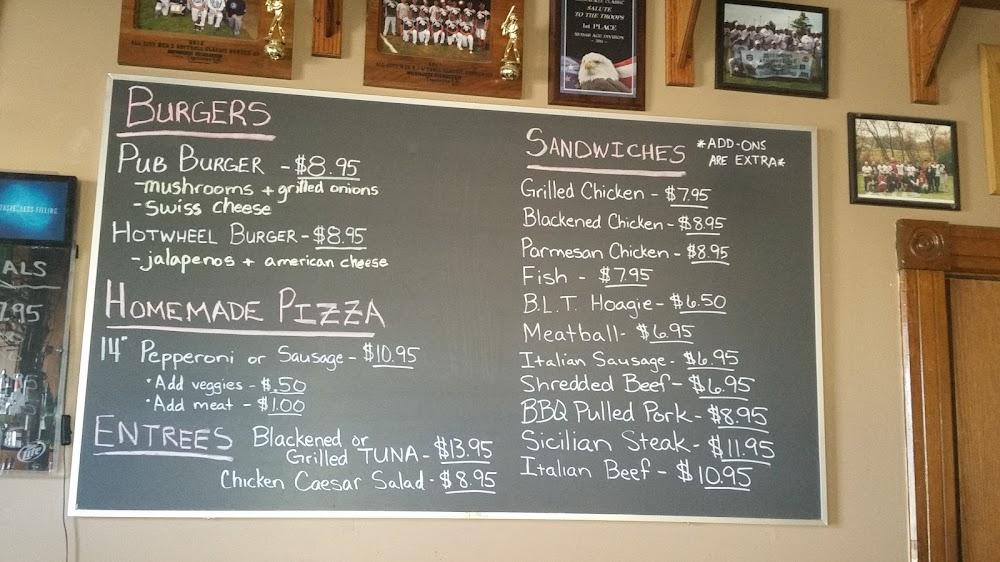 SALUTE
TO THE TROOPS
1st PLACE
BURGERS
PUB BURGER - $8.95
- mushrooms + grilled onions
- swiss cheese
HOTWHEEL BURGER - $8.95
- jalapenos + american cheese
HOMEMADE PIZZA
14" Pepperoni or Sausage - $10.95
• Add veggies - $.50
• Add meat - $1.00
ENTREES
Blackened or
Grilled TUNA - $13.95
Chicken Caesar Salad - $8.95
SANDWICHES
*ADD-ONS
ARE EXTRA*
Grilled Chicken - $7.95
Blackened Chicken - $8.95
Parmesan Chicken - $8.95
Fish - $7.95
B.L.T. Hoagie - $6.50
Meatball - $6.95
Italian Sausage - $6.95
Shredded Beef - $6.95
BBQ Pulled Pork - $8.95
Sicilian Steak - $11.95
Italian Beef - $10.95
FILLING
ALS
7.95
Lite